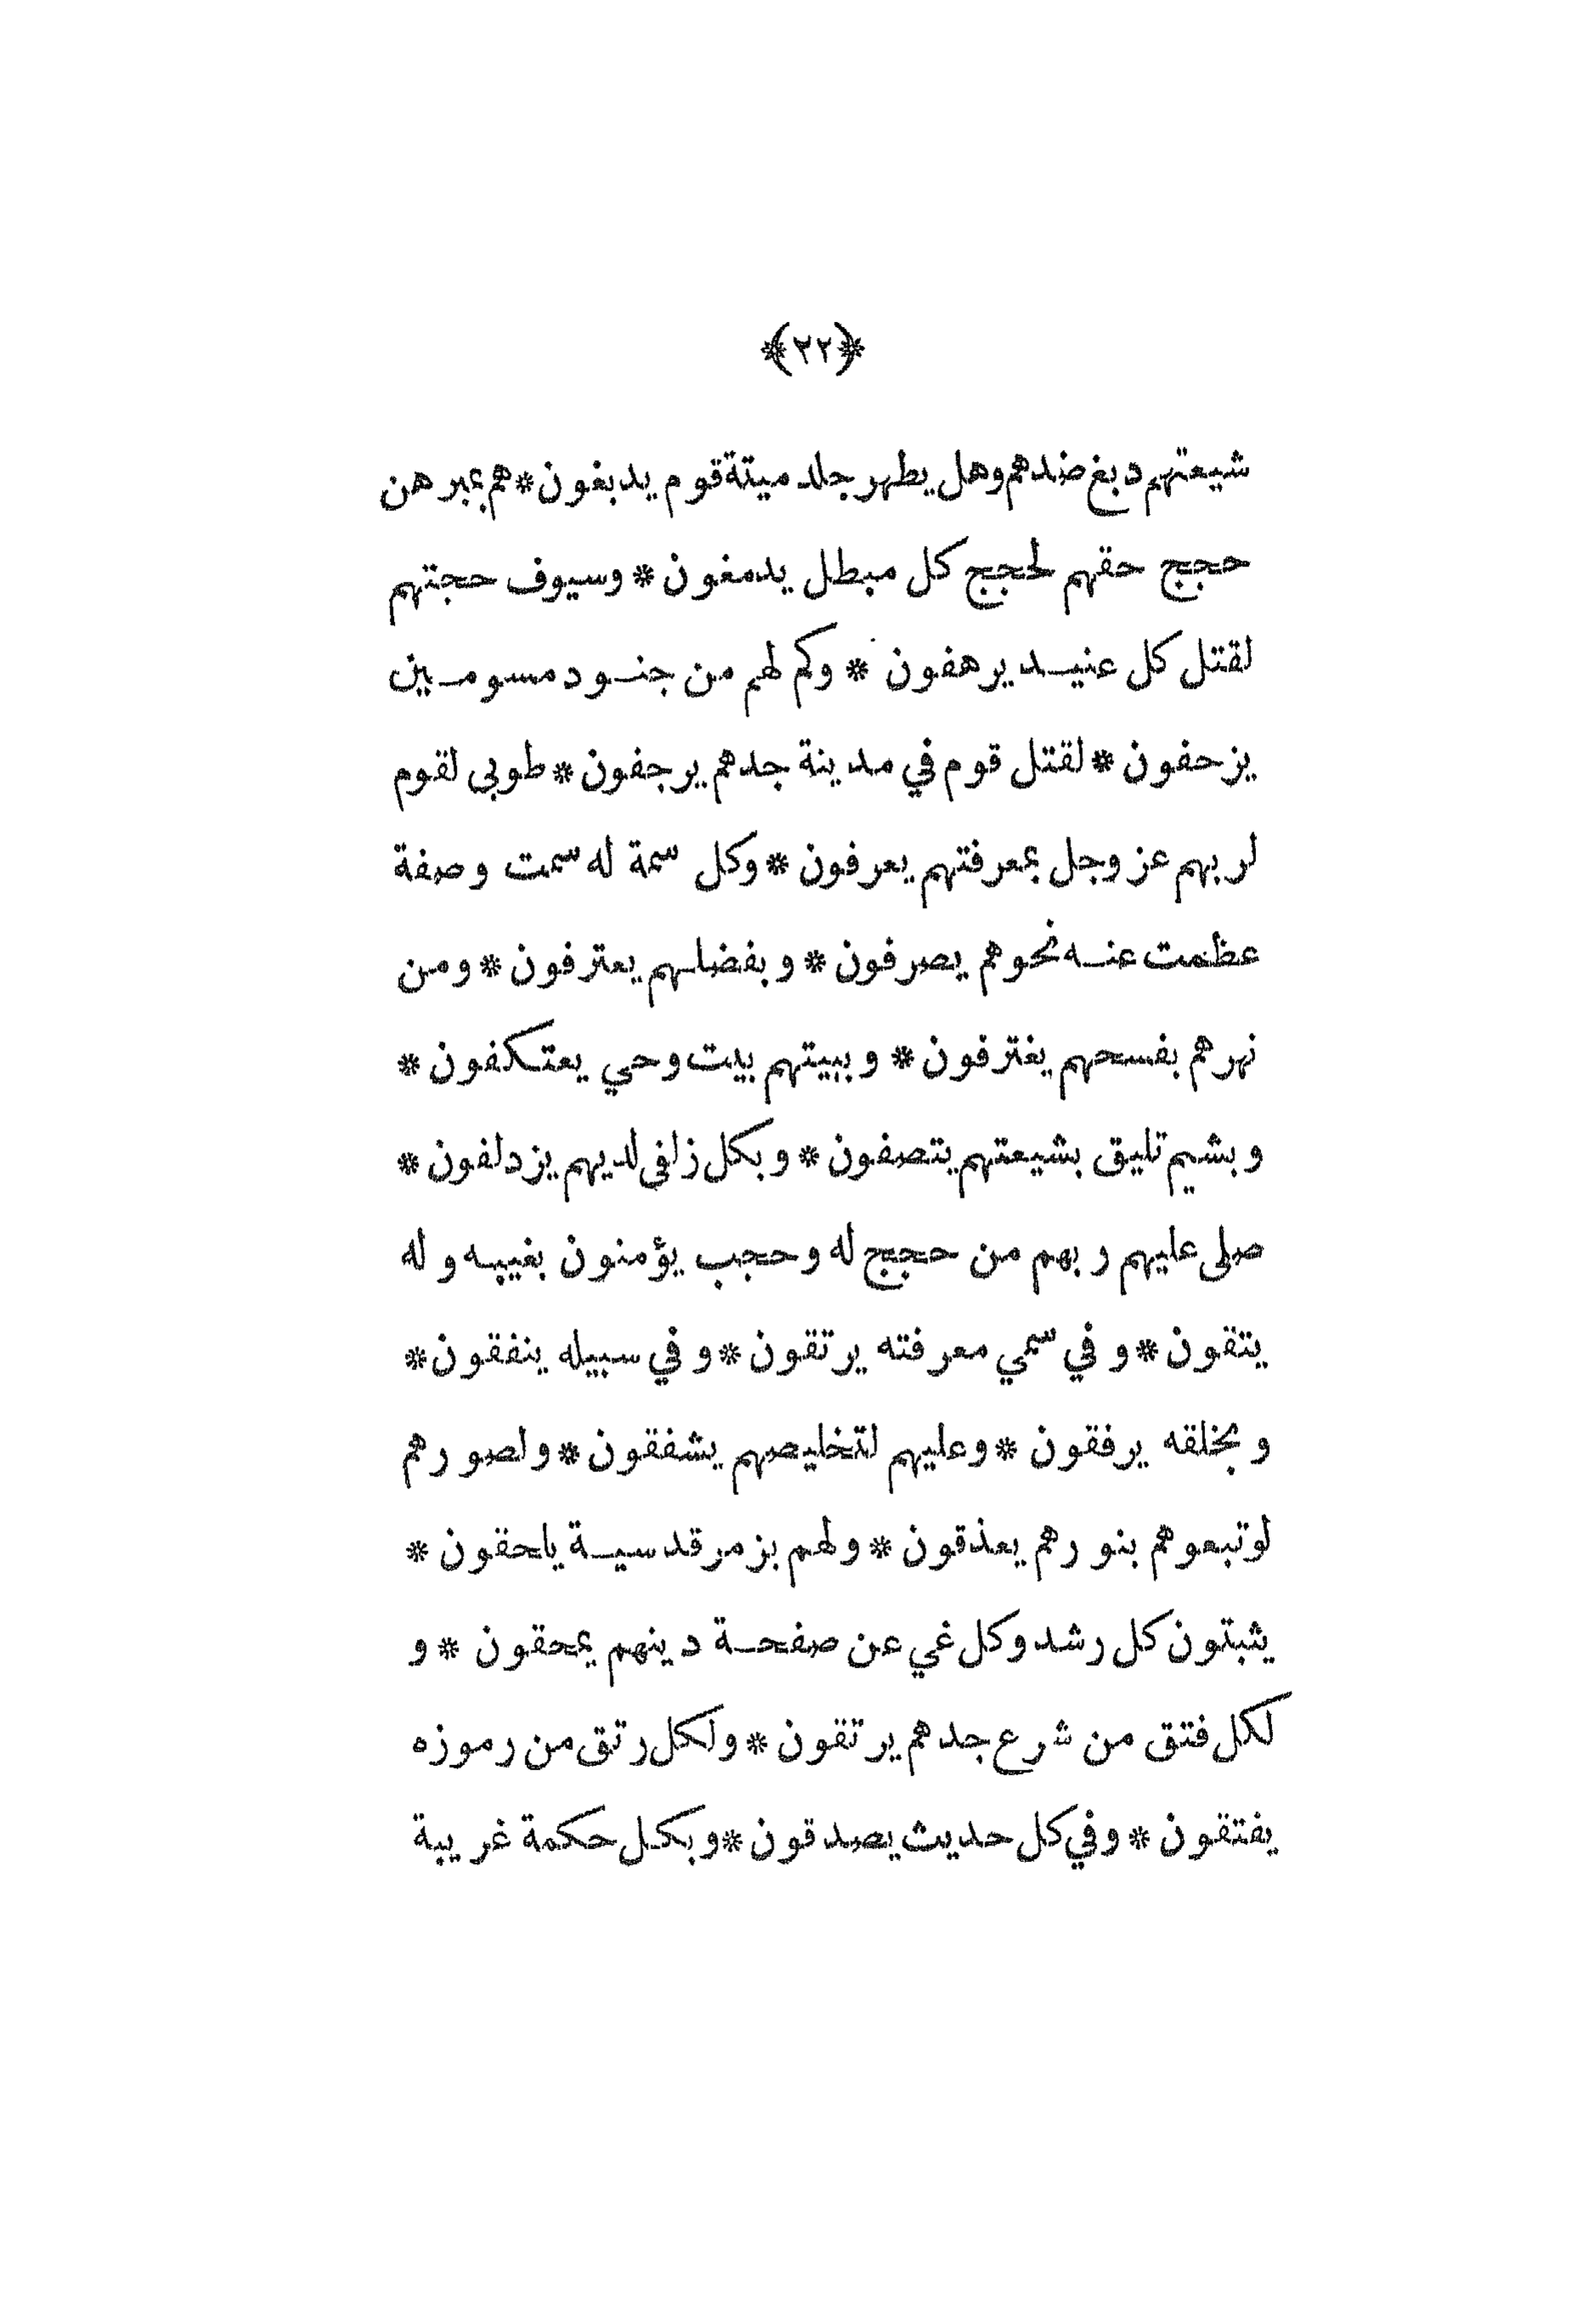 ﴿٢٢﴾
شيعتهم دبغ ضدهم وهل يطهر جلد ميتة قوم يدبغون * هم بمبرهن
حجج حقهم لحجج كل مبطل يدمغون * وسيوف حجتهم
لقتل كل عنيد يرهفون * وكم لهم من جنود مسومين
يزحفون * لقتل قوم في مدينة جدهم يرجفون * طوبى لقوم
لربهم عز وجل بمعرفتهم يعرفون * وكل سمة له سمت وصفة
عظمت عنه نحوهم يصرفون * وبفضلهم يعترفون * ومن
نهرهم بفسحهم يغترفون * وببيتهم بيت وحي يعتكفون *
وبشيم تليق بشيعتهم يتصفون * وبكل زلفى لديهم يزدلفون *
صلى عليهم ربهم من حجج له وحجب يؤمنون بغيبه وله
يتقون * وفي سمي معرفته يرتقون * وفي سبيله ينفقون *
وبخلقه يرفقون * وعليهم لتخليصهم يشفقون * ولصورهم
لو تبعوهم بنورهم يعذقون * ولهم بزمر قدسية يلحقون *
يثبتون كل رشد وكل غي عن صفحة دينهم يمحقون * و
لكل فتق من شرع جدهم يرتقون * ولكل رتق من رموزه
يفتقون * وفي كل حديث يصدقون * وبكل حكمة غريبة